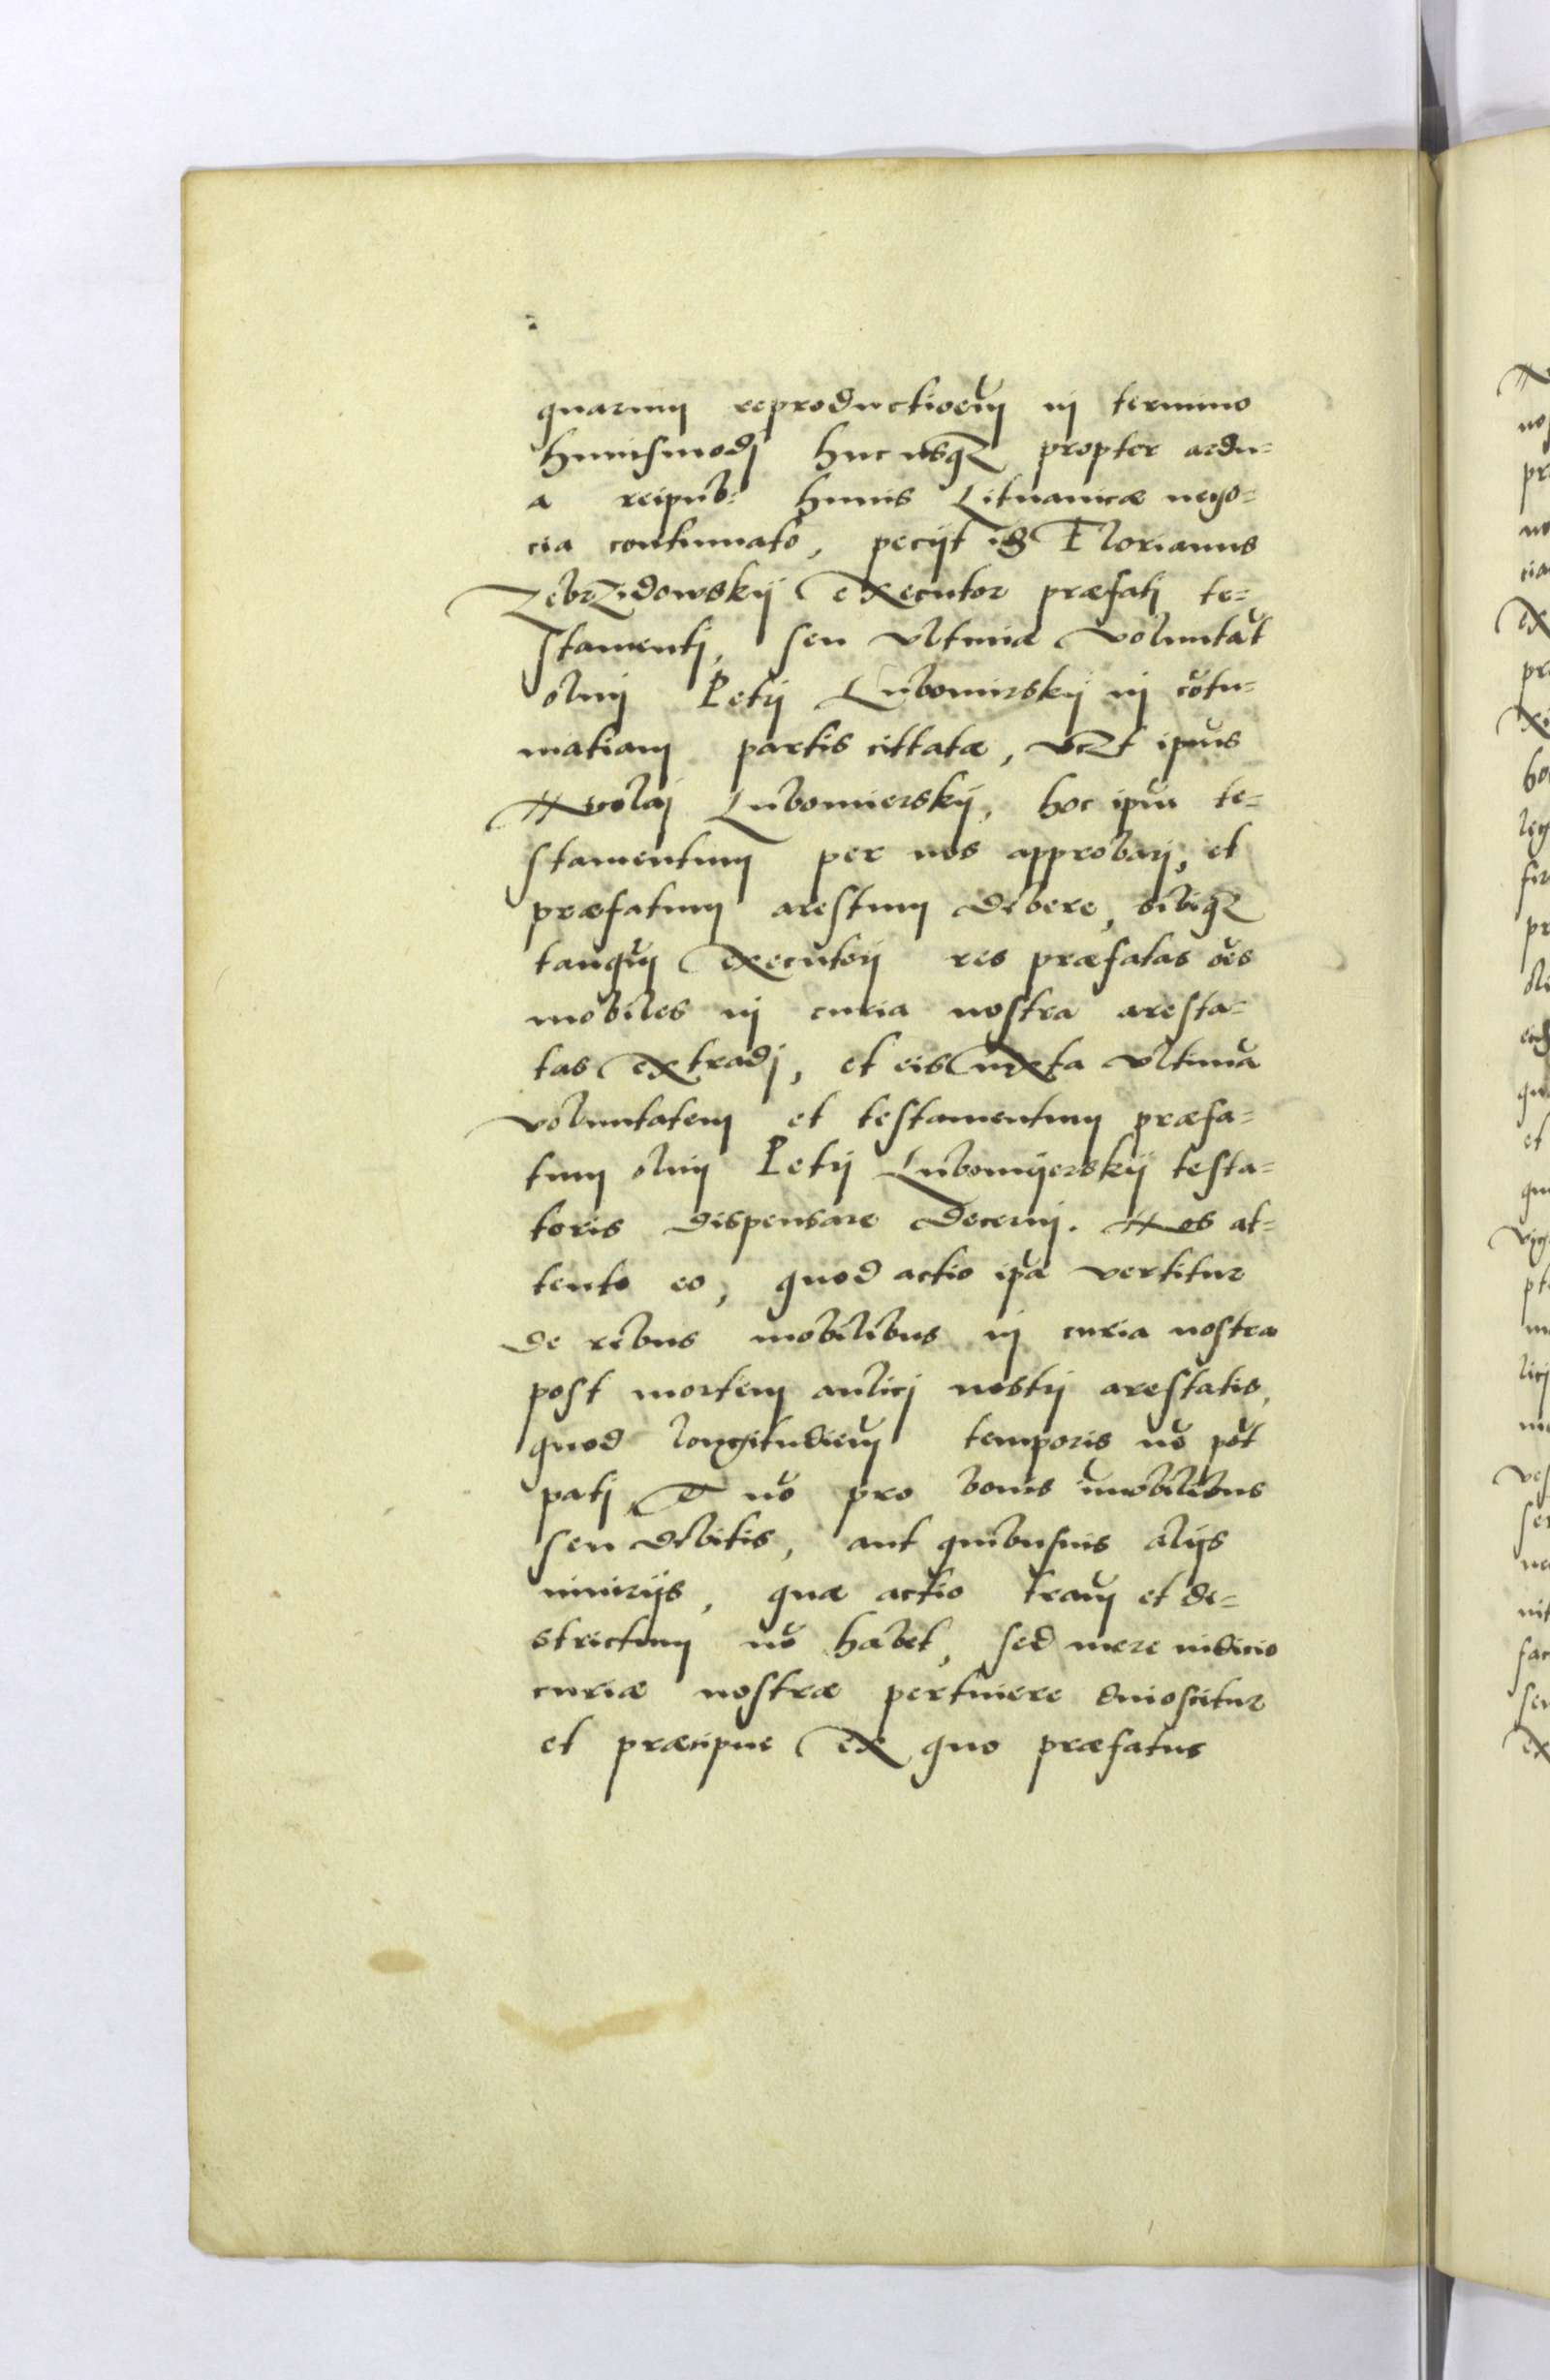 quarum reproductioem in termino
huiusmodi hucusq₃ propter ardu=
a reipub: huius Lituanicæ nego=
cia continuato, peciit is Florianus
Zebrzidowskij executor præfati te=
stamenti, seu ultimæ voluntat
olim Petri Lubomirskij in cotu=
matiam partis cittatæ, vczt ipius
Nicolai Lubomierskij, hoc ipm te=
stamentum per nos approbari, et
præfatum arestum debere, sibiq₃
tanqm executori res præfatas oes
mobiles in curia nostra aresta=
tas extradi, et eis iuxta ultimā
voluntatem et testamentum præfa=
tum olim Petri Lubomijerskij testa=
toris dispensare decerni. Nos at=
tento eo, quod actio ipa vertitur
de rebus mobilibus in curia nostra
post mortem aulici nostri arestatis,
quod longitudiem temporis no pot
pati, et no pro bonis imobilibus
seu debitis, aut quibusuis aliis
iniuriis, quæ actio tram et de=
strictum no habet, sed mere iudicio
curiæ nostræ pertinere dnioscitur
et præcipue ex quo præfatus